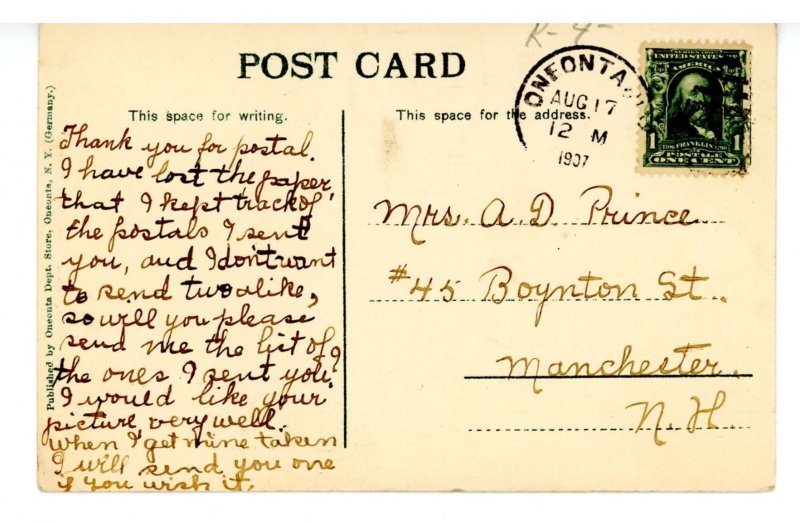 K-4-
POST CARD
ONEONTA
AUG 17
12 M
1907
SERIES 1902
AMERICA
1 1706 FRANKLIN 1790 1
POSTAGE
ONE CENT
This space for writing.
This space for the address.
Thank you for postal.
I have lost the paper
that I kept track of
the postals I sent
you, and I don't want
to send two alike,
so will you please
send me the list of
the ones I sent you?
I would like your
picture very well.
When I get mine taken
I will send you one
if you wish it.
Mrs. A. D. Prince
#45 Boynton St.
Manchester.
N. H.
Published by Oneonta Dept. Store, Oneonta, N. Y. (Germany.)